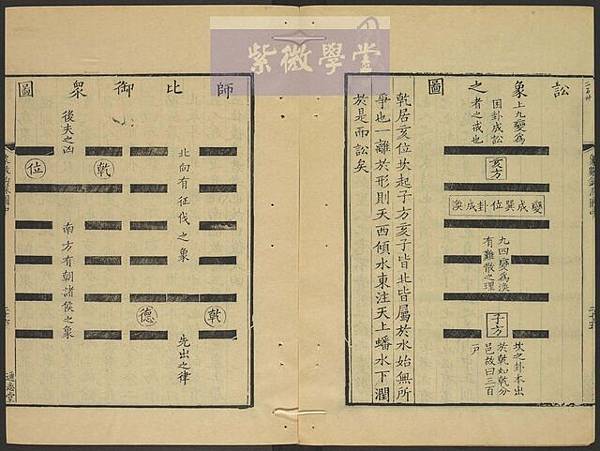 紫微學堂
訟象之圖
上九變爲
困卦成訟
者之戒也
亥方
變成巽位卦成渙
九四變爲渙
有離散之理
子方
坎之卦本出
於乾如乾分
邑故曰三百
戶
乾居亥位坎起子方亥子皆北皆屬於水始無所
爭也一離於形則天西傾水東注天上蟠水下潤
於是而訟矣
師比御衆圖
北向有征伐之象
先出之律
乾
德
乾
後夫之凶
位
南方有朝諸侯之象
通志堂